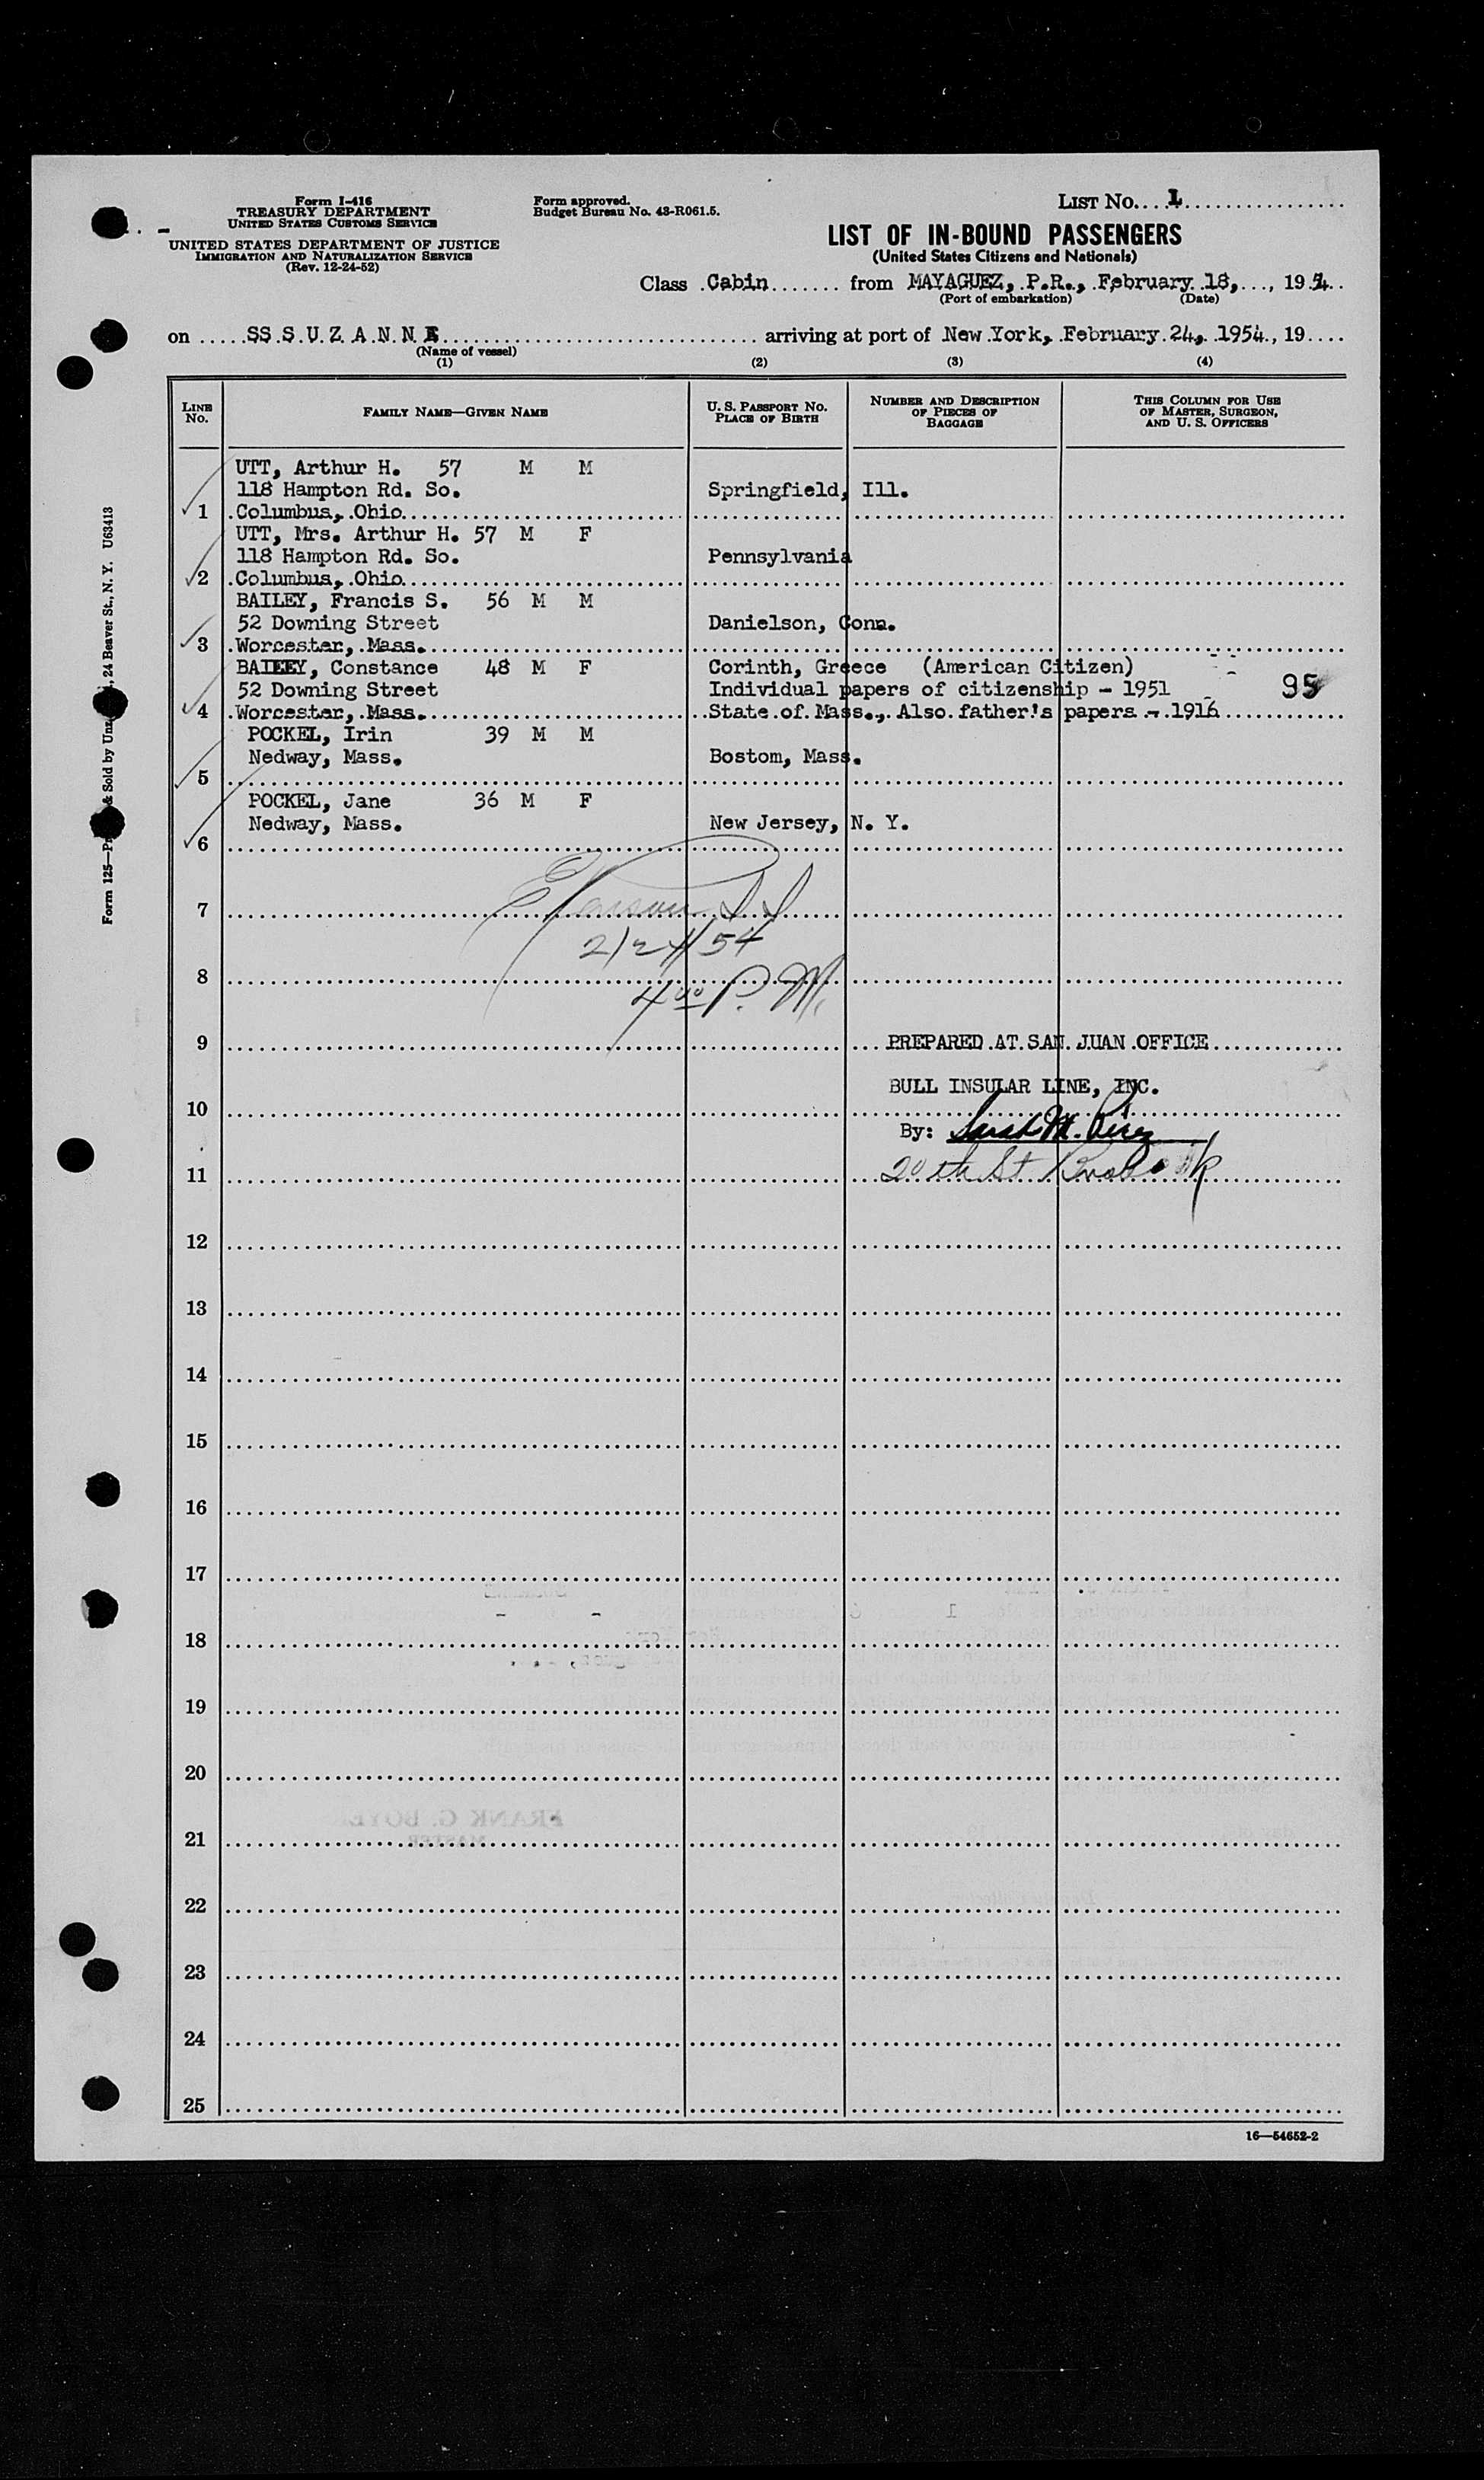 Form I-416
TREASURY DEPARTMENT
UNITED STATES CUSTOMS SERVICE
UNITED STATES DEPARTMENT OF JUSTICE
IMMIGRATION AND NATURALIZATION SERVICE
(Rev. 12-24-52)
Form approved.
Budget Bureau No. 43-R061.5.
LIST No. 1
LIST OF IN-BOUND PASSENGERS
(United States Citizens and Nationals)
Class Cabin from MAYAGUEZ, P.R., February 18, 1954
(Port of embarkation) (Date)
on SS S U Z A N N E arriving at port of New York, February 24, 1954, 19
(Name of vessel)
(1) (2) (3) (4)
LINE No. FAMILY NAME—GIVEN NAME U. S. PASSPORT NO. PLACE OF BIRTH NUMBER AND DESCRIPTION OF PIECES OF BAGGAGE THIS COLUMN FOR USE OF MASTER, SURGEON, AND U. S. OFFICERS
UTT, Arthur H. 57 M M
118 Hampton Rd. So. Springfield, Ill.
1 Columbus, Ohio
UTT, Mrs. Arthur H. 57 M F
118 Hampton Rd. So. Pennsylvania
2 Columbus, Ohio
BAILEY, Francis S. 56 M M
52 Downing Street Danielson, Conn.
3 Worcester, Mass.
BAILEY, Constance 48 M F Corinth, Greece (American Citizen)
52 Downing Street Individual papers of citizenship - 1951 95
4 Worcester, Mass. State of Mass., Also father's papers - 1916
POCKEL, Irin 39 M M
Nedway, Mass. Bostom, Mass.
5
POCKEL, Jane 36 M F
Nedway, Mass. New Jersey, N. Y.
6
7
2/24/54
8
4 00 P. M.
9 PREPARED AT SAN JUAN OFFICE
BULL INSULAR LINE, INC.
10
By: Sarah M.
11 20th St
12
13
14
15
16
17
18
19
20
FRANK G. BOYER
MASTER
21
22
23
24
25
16—54652-2
Form 125—Pr & Sold by Unz , 24 Beaver St., N. Y. U63413